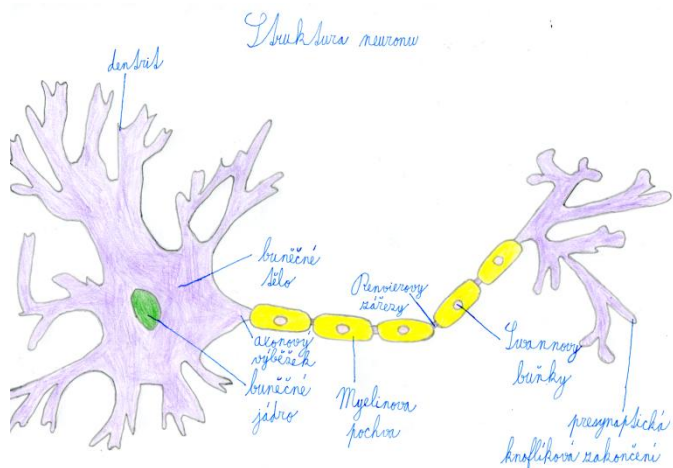 Struktura neuronu
dentrit
buněčné
tělo
Renvierovy
zářezy
axonovy
výběžek
buněčné
jádro
Myelinova
pochva
Swannovy
buňky
presynaptická
knoflíková zakončení